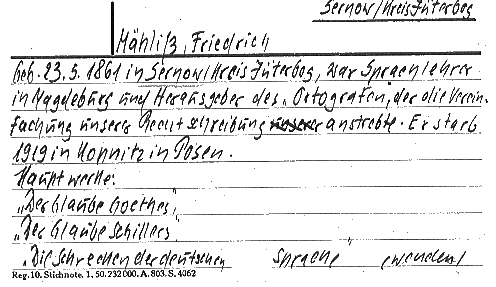 Sernow/Kreis Jüterbog
Mähliß, Friedrich
Geb. 23.5. 1861 in Sernow/Kreis Jüterbog, war Sprachlehrer
in Magdeburg und Herausgeber des „Ortografen, der die Verein-
fachung unserer Rechtschreibung anstrebte. Er starb
1919 in Kopnitz in Posen.
Hauptwerke:
„Der Glaube Goethes",
„Der Glaube Schillers"
„Die Schrecken der deutschen Sprache
Reg. 10. Stichnote. 1. 50. 232000. A. 803. S. 4062